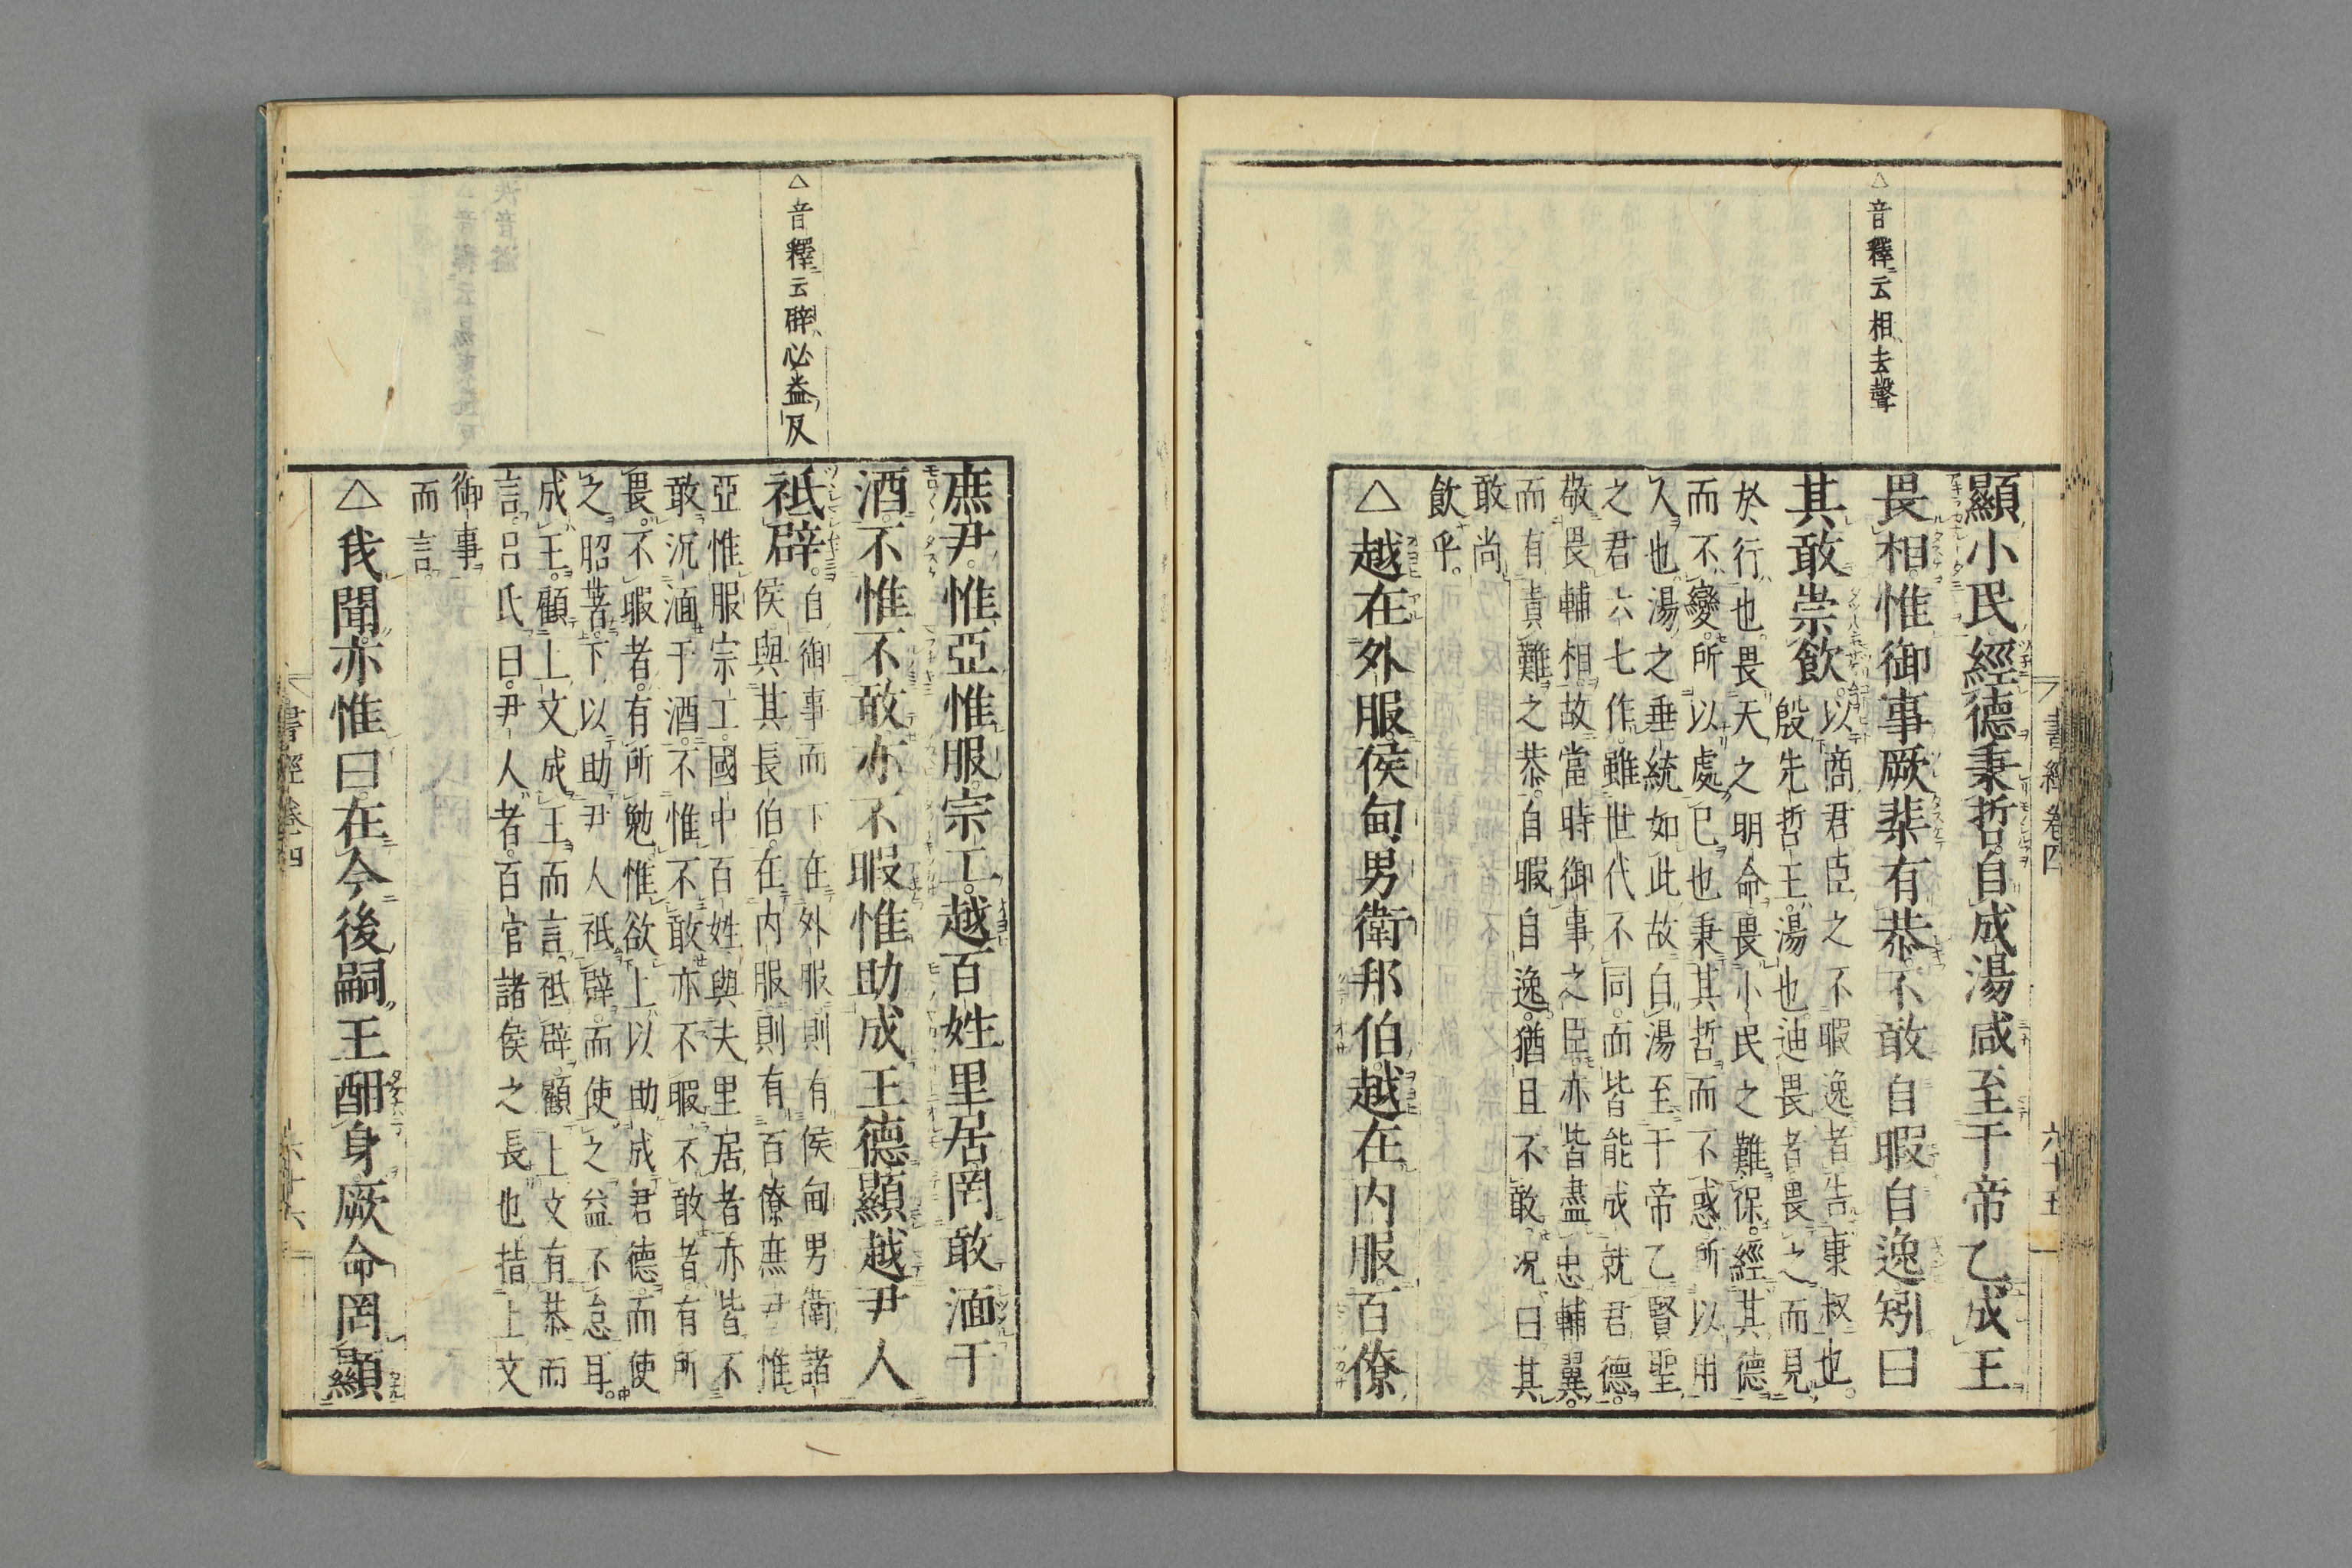 △音釋云相去聲
顯小民經德秉哲自成湯咸至于帝乙成王
畏相惟御事厥棐有恭不敢自暇自逸矧曰
其敢崇飲以商君臣之不暇逸者告康叔也
殷先哲王湯也迪畏者畏之而見
於行也畏天之明命畏小民之難保經其德
而不變所以處己也秉其哲而不惑所以用
人也湯之垂統如此故自湯至于帝乙賢聖
之君六七作雖世代不同而皆能成就君德
敬畏輔相故當時御事之臣亦皆盡忠輔翼
而有責難之恭自暇自逸猶且不敢况曰其
敢尚
飲乎
△越在外服侯甸男衛邦伯越在内服百僚
書經卷四
六十五
△音釋云辟必益反
庶尹惟亞惟服宗工越百姓里居罔敢湎于
酒不惟不敢亦不暇惟助成王德顯越尹人
祗辟自御事而下在外服則有侯甸男衛諸
侯與其長伯在内服則有百僚庶尹惟
亞惟服宗工國中百姓與夫里居者亦皆不
敢沉湎于酒不惟不敢亦不暇不敢者有所
畏不暇者有所勉惟欲上以助成君德而使
之昭著下以助尹人祗辟而使之益不怠耳
成王顧上文成王而言祗辟顧上文有恭而
言呂氏曰尹人者百官諸侯之長也指上文
御事
而言
△我聞亦惟曰在今後嗣王酣身厥命罔顯
書經卷四
六十六